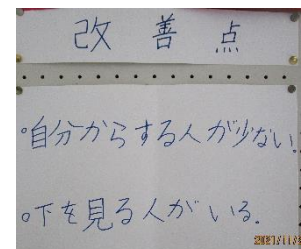 改善点
•自分からする人が少ない.
•下を見る人がいる.